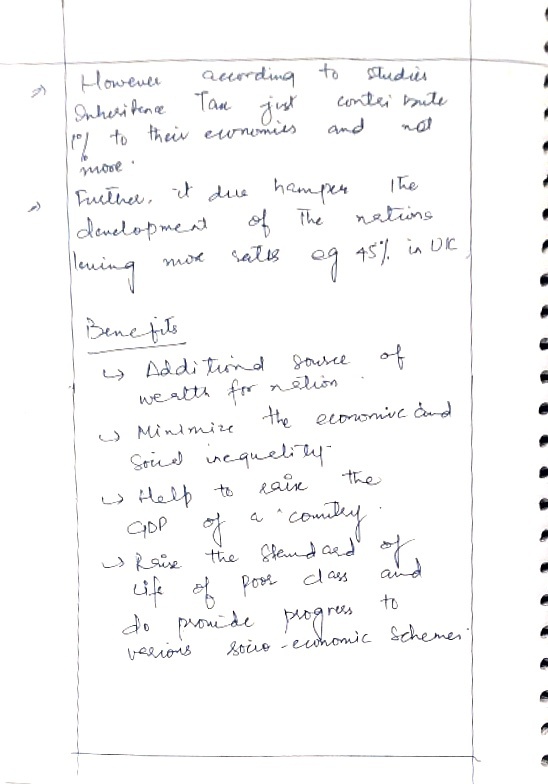 ⇒ However according to studies
Inheritence Tax just contribute
1% to their economies and not
more.
⇒ Further, it due hamper the
development of the nations
leving more rates eg 45% in UK
Benefits
↳ Additional source of
wealth for nation.
↳ Minimize the economic and
social inequality
↳ Help to raise the
GDP of a country.
↳ Raise the standard of
life of poor class and
do provide progress to
various socio-economic schemes.